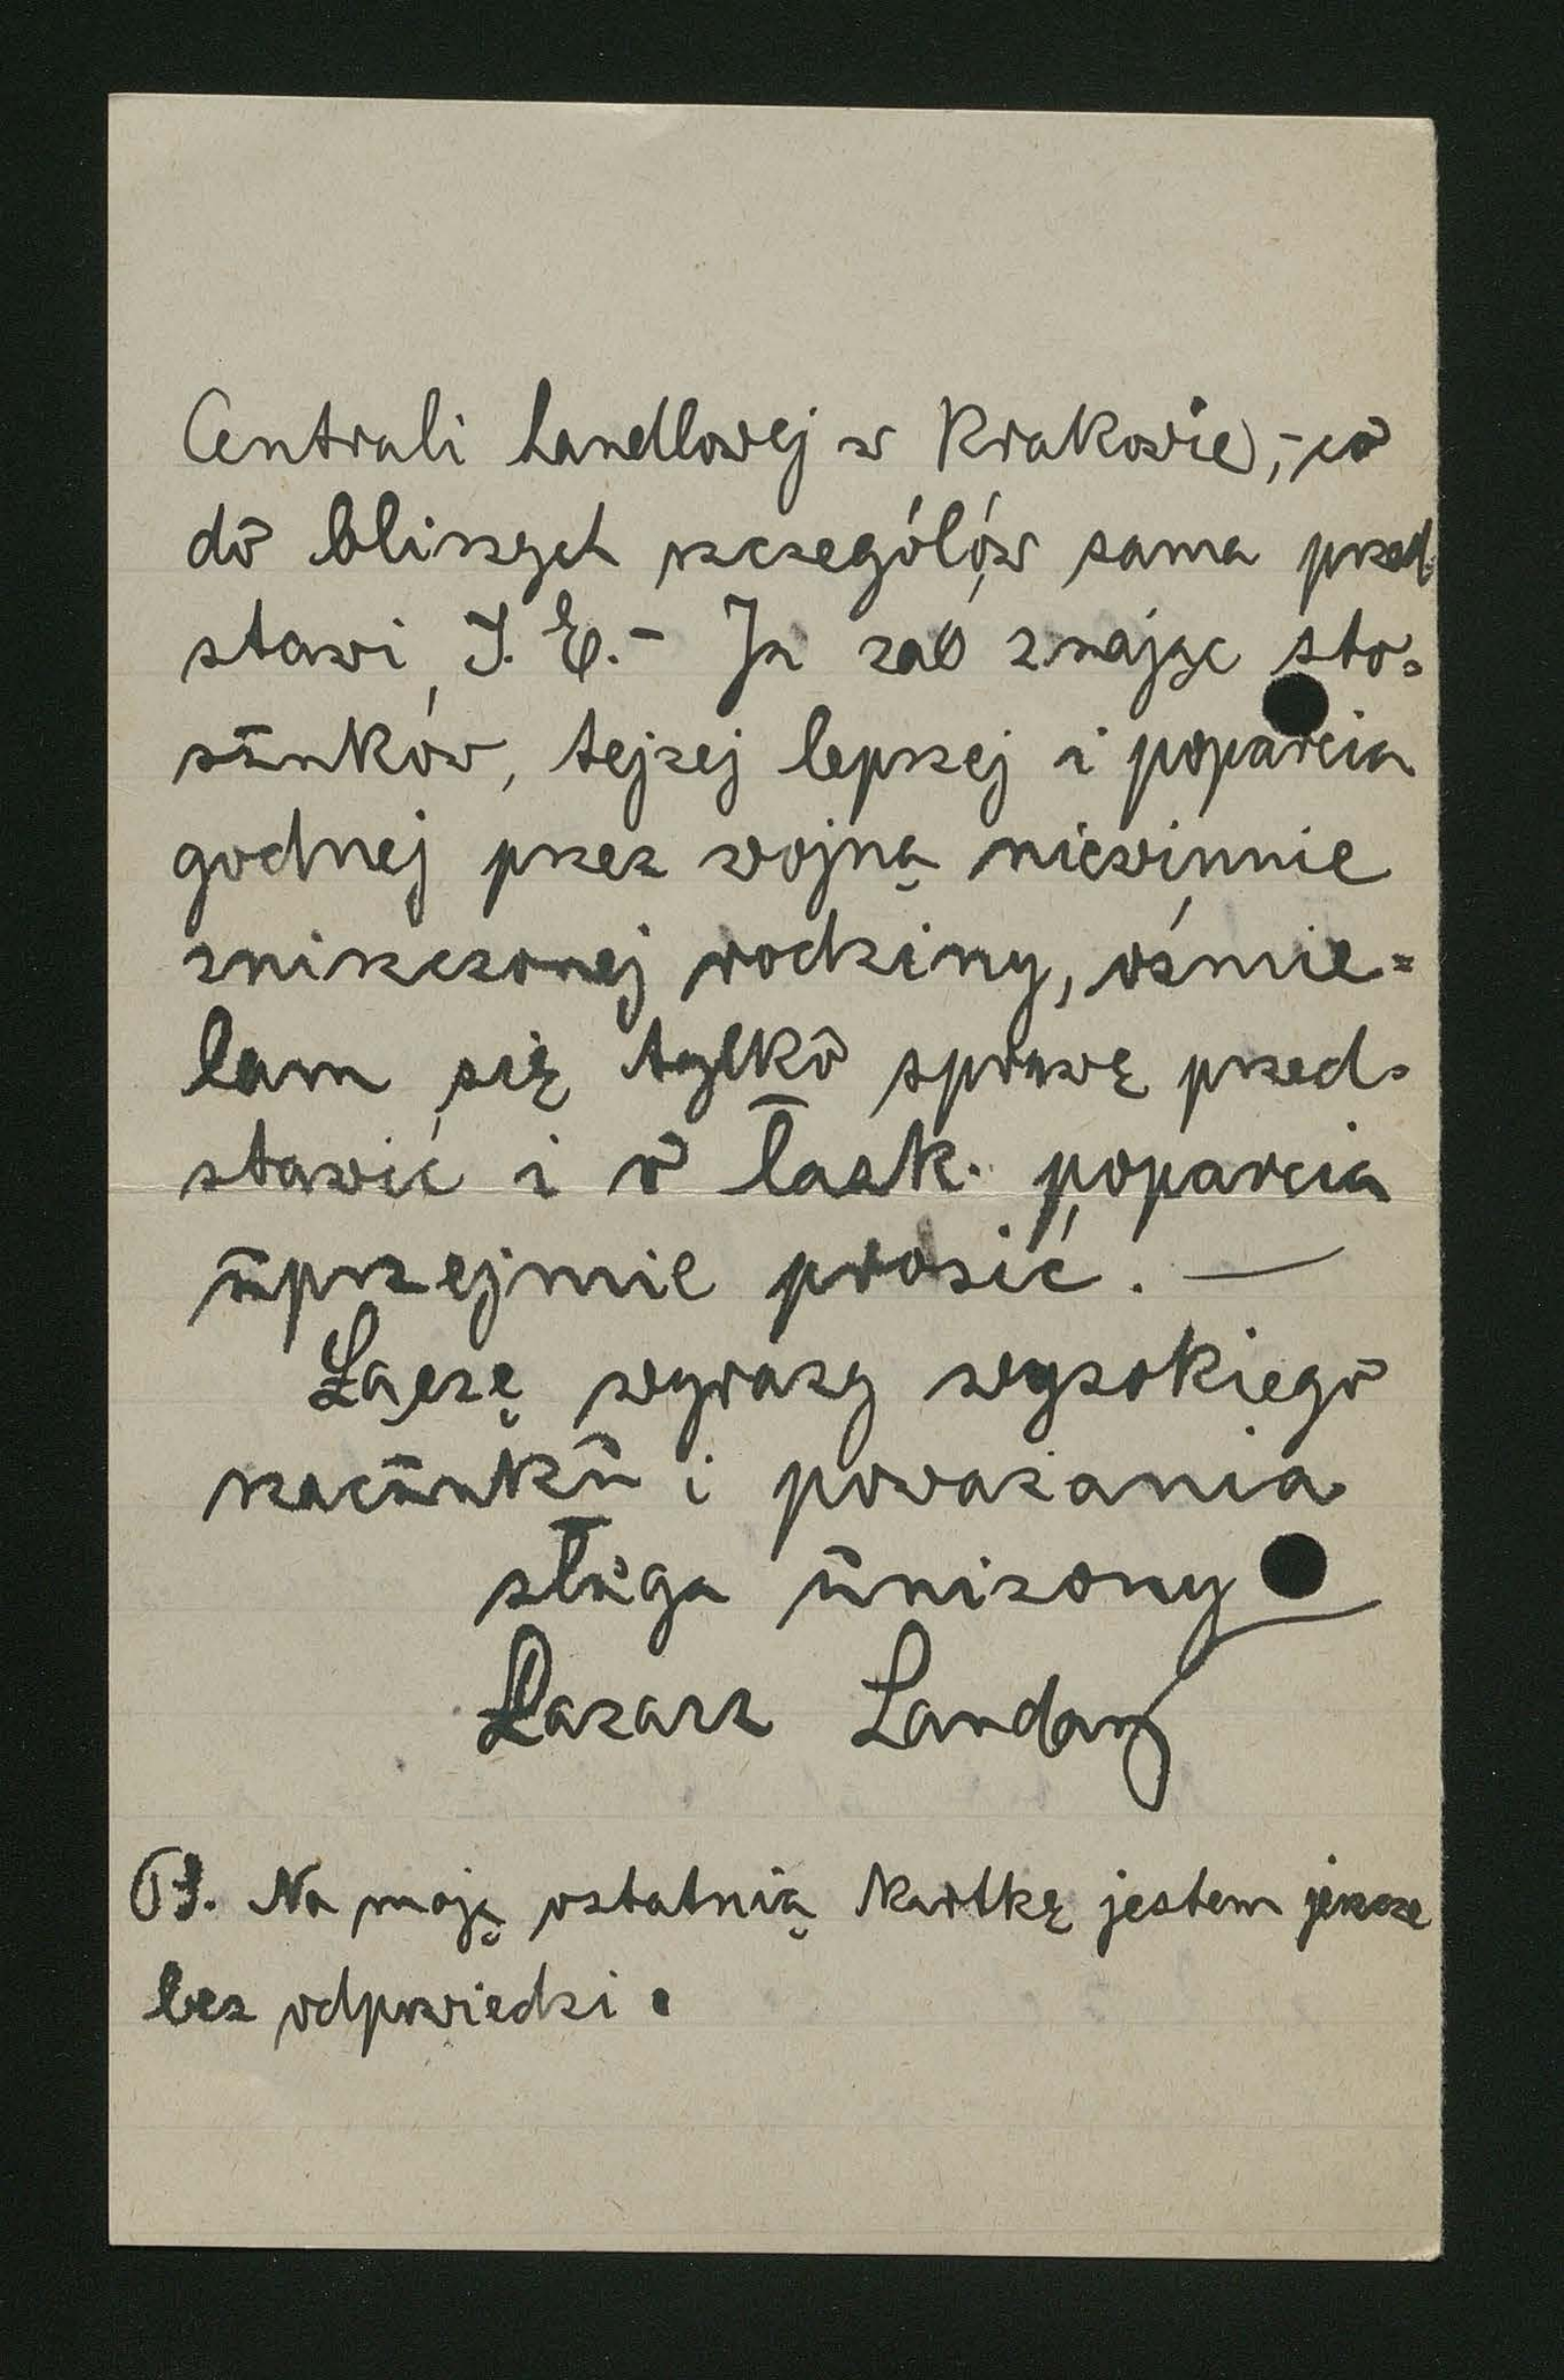 Centrali handlowej w Krakowie, - co
do bliszych szczególów sama przed-
stawi J. E. - Ja zaś znając sto-
sunków, tejzej lepszej i poparcia
godnej przez wojną niewinnie
zniszczonej rodziny, ośmie=
lam się tylko sprawę przed-
stawić i o łask. poparcia
uprzejmie prosić. —
Łączę wyrazy wysokiego
szacunku i powazania
sługa unizony
Lazarz Landau
PS. Na moją ostatnią kartkę jestem jeszcze
bez odpowiedzi.